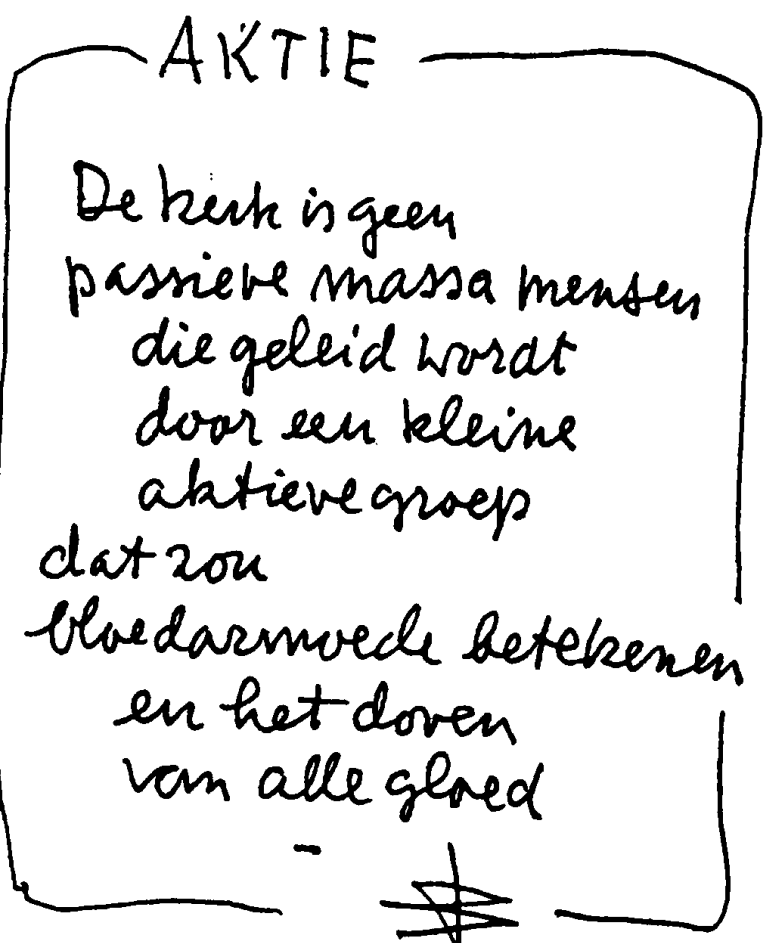 AKTIE
De kerk is geen
passieve massa mensen
die geleid wordt
door een kleine
aktieve groep
dat zou
bloedarmoede betekenen
en het doven
van alle gloed
-